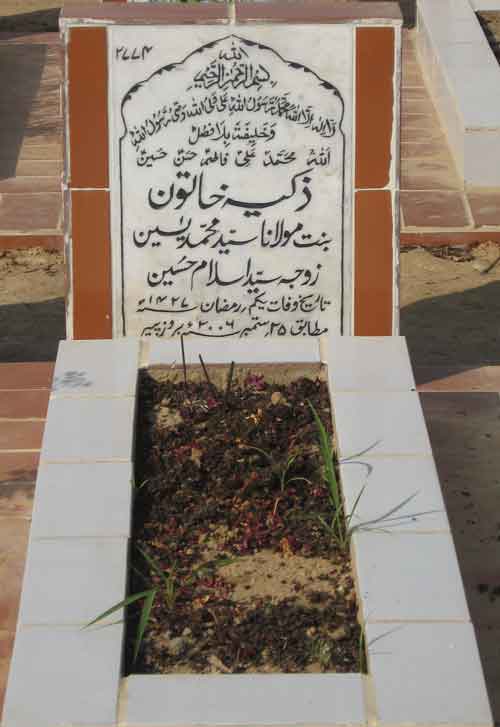 ۲۷۷۴
الله
بسم الله الرحمن الرحیم
لا اله الا الله محمد رسول الله علی ولی الله وصی رسول الله
و خلیفة بلا فصل
الله محمد علی فاطمه حسن حسین
ذکیه خاتون
بنت مولانا سید محمد یٰسین
زوجه سید اسلام حسین
تاریخ وفات یکم رمضان ۱۴۲۷ھ
مطابق ۲۵ ستمبر ۲۰۰۶ء بروز پیر